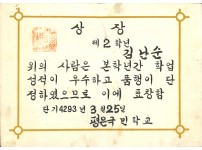 상장
제2학년
김난순
위의 사람은 본학년간 학업
성적이 우수하고 품행이 단
정하였으므로 이에 표창함
단기4293년 3월25일
평은국민학교